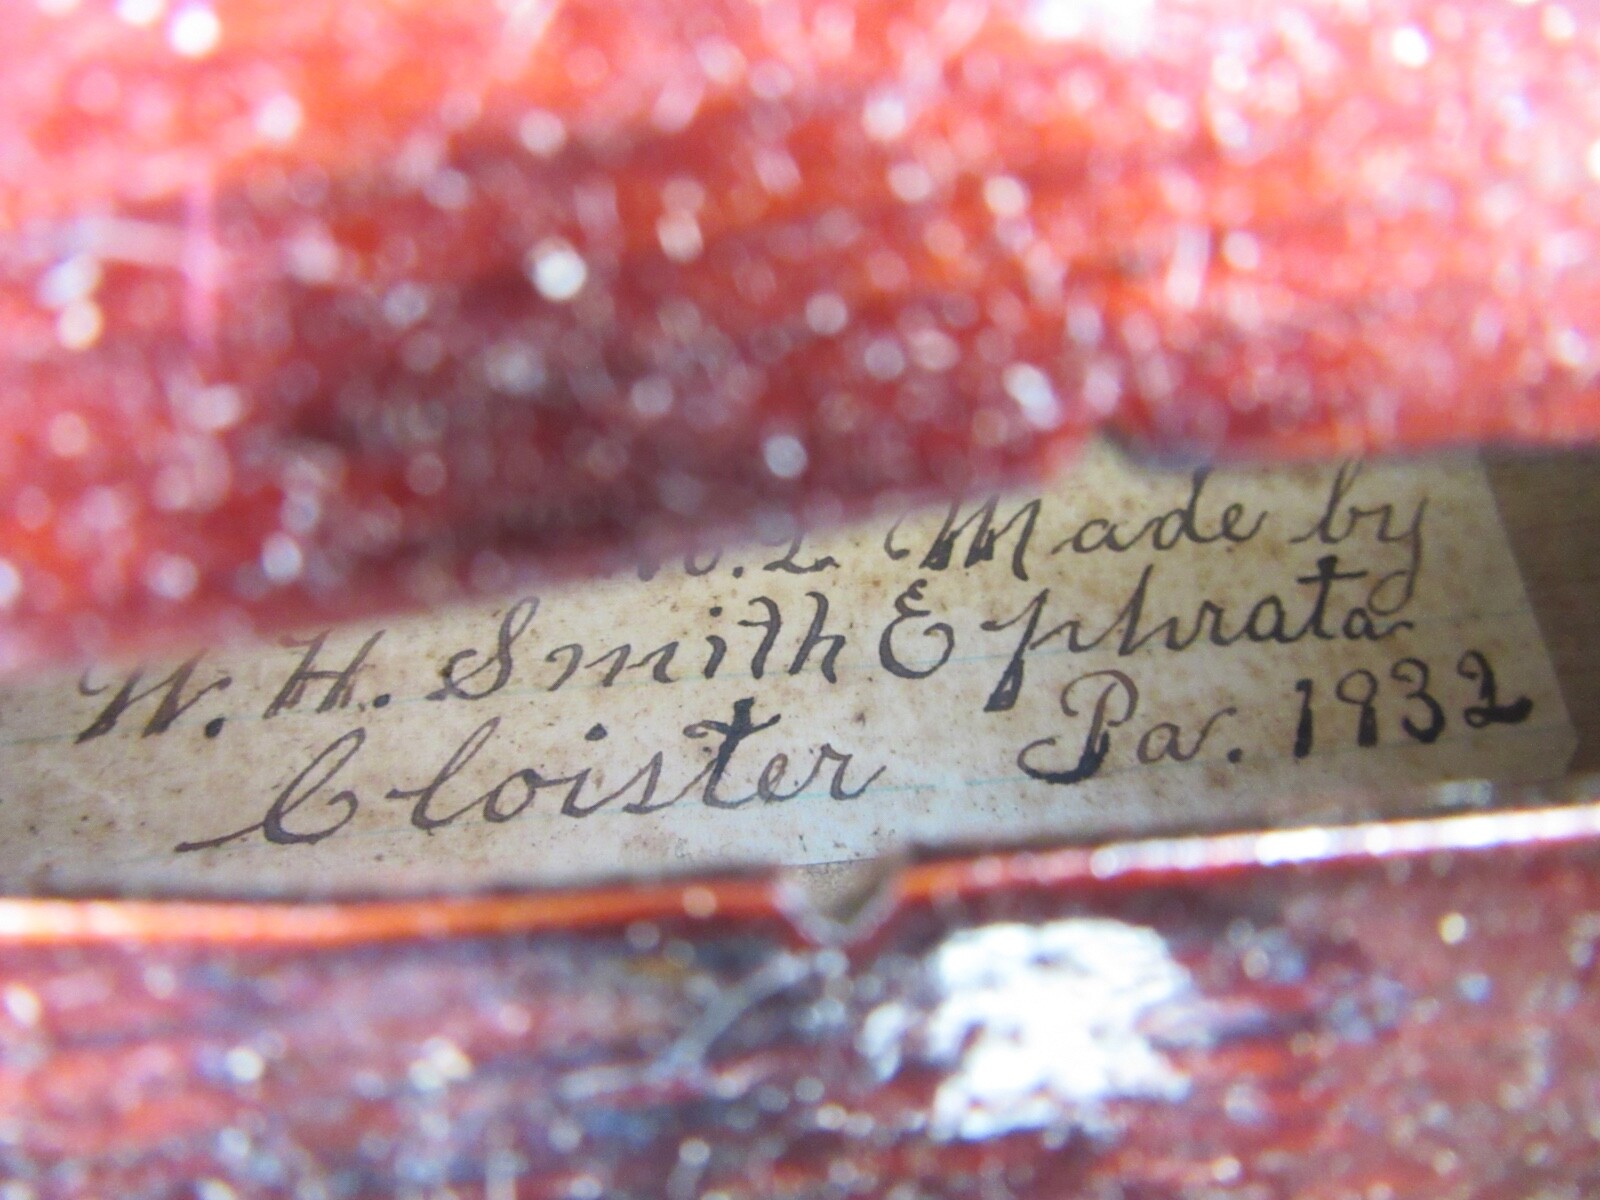 No.2 Made by
W. H. Smith Ephrata
Cloister Pa. 1932